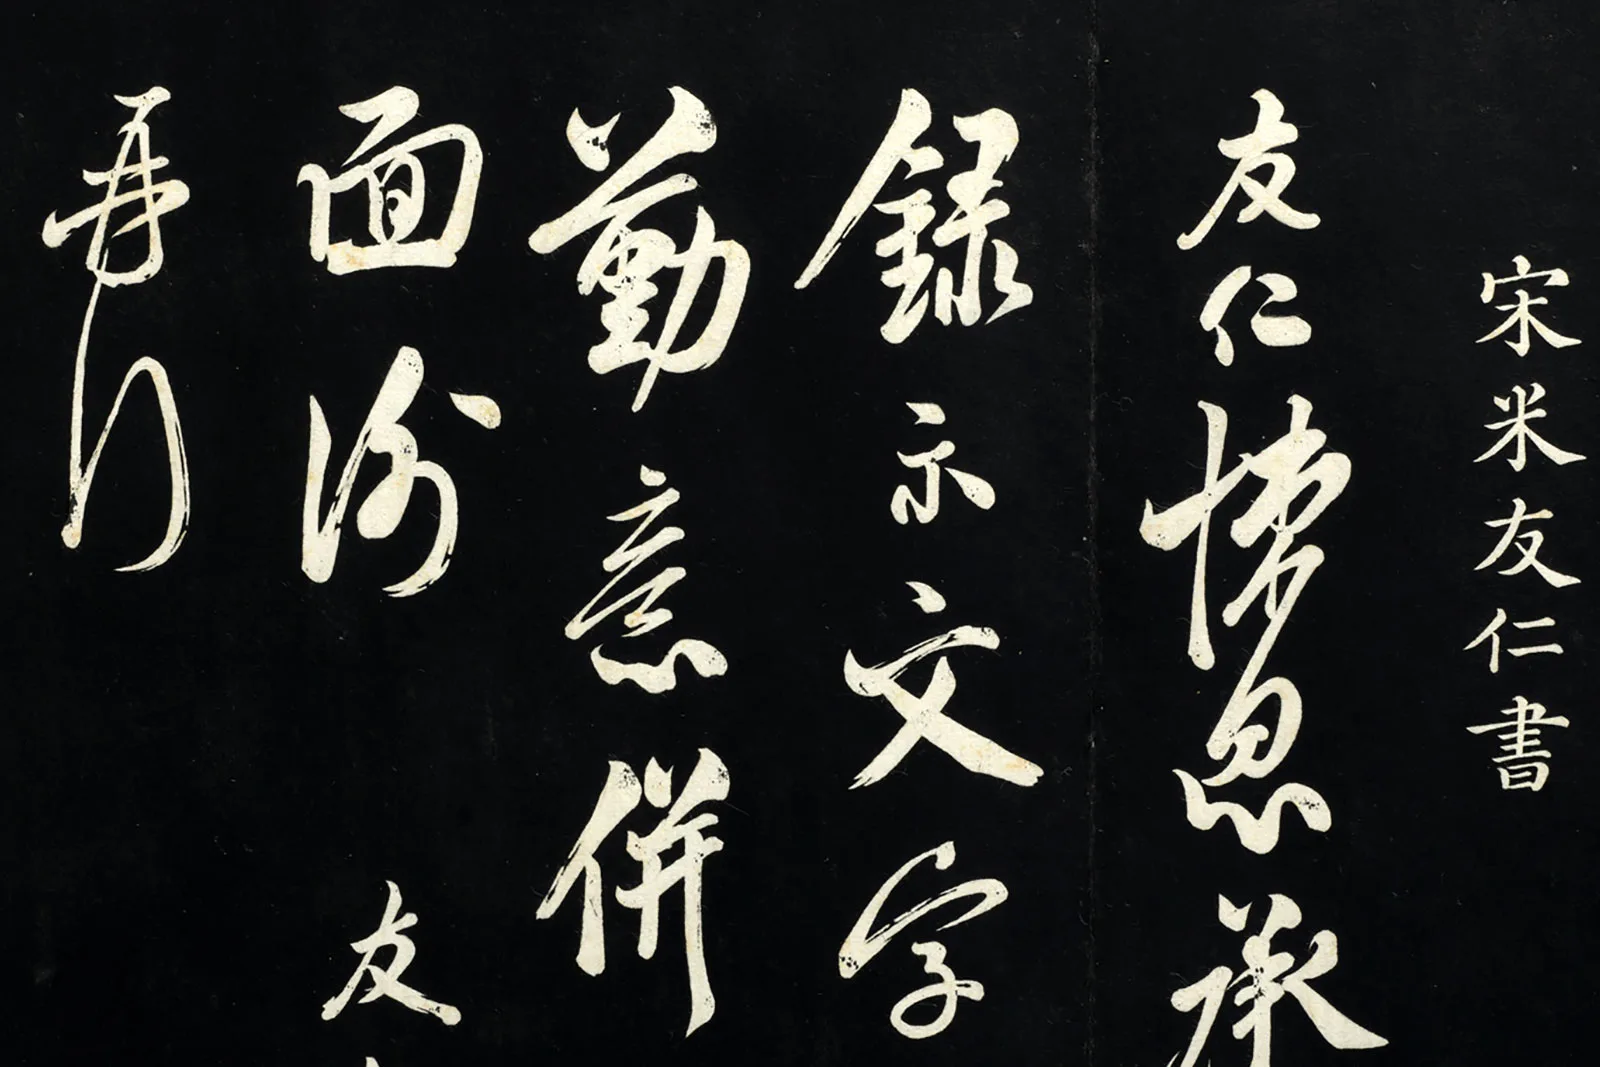 宋米友仁書
友仁悚息承
録示文字
勤意併
面謝 友
再拜